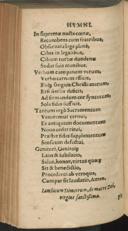 HYMNI.
In supremæ nocte cœnæ,
Recumbens cum fratribus,
Observata lege plenè,
Cibis in legalibus,
Cibum turbæ duodenæ
Se dat suis manibus.
Verbum caro panem verum,
Verbo carnem efficit,
Fitq; sanguis Christi merum:
Et si sensus deficit,
Ad firmandum cor syncerum
Sola fides sufficit.
Tantum ergo Sacramentum
Veneremur cernui,
Et antiquum documentum
Novo cedat ritui,
Præstet fides supplementum
Sensuum defectui.
Genitori, Genitoq;
Laus & iubilatio,
Salus, honor, virtus quoq;
Sit & benedictio,
Procedenti ab utroque,
Compar sit laudatio. Amen.